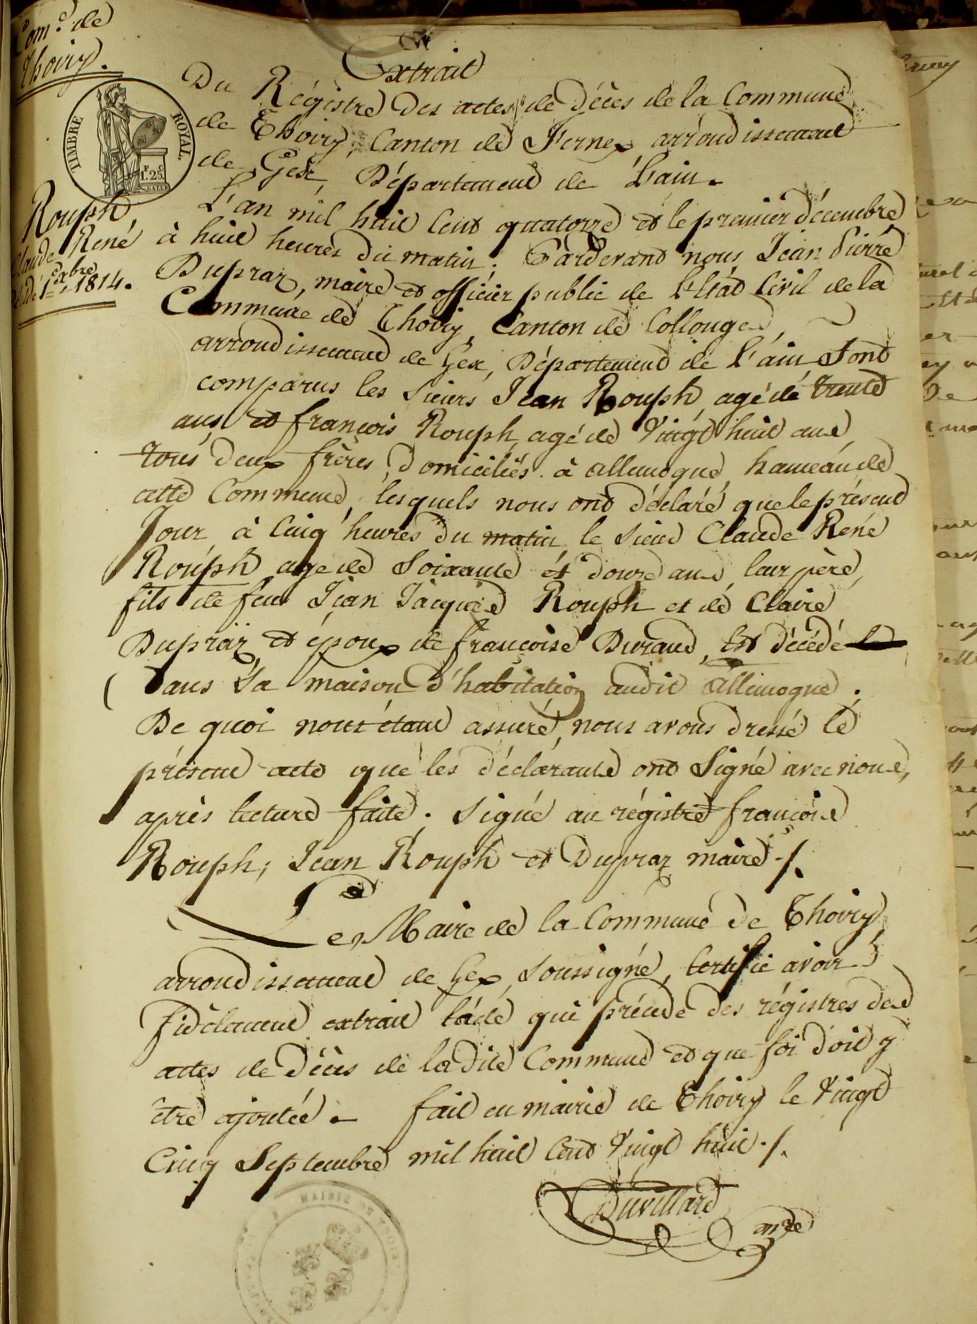 Com.e de
Thoiry.
TIMBRE ROYAL
1.F 25.C
Rouph,
Claude René
1er Xbre 1814.
Extrait
Du Régistre des actes de décès de la Commune
de Thoiry, Canton de Fernex arrondissement
de Gex, Département de L'ain.
L'an mil huit Cent quatorze et le premier décembre
à huit heures du matin; Pardevant nous Jean Pierre
Dupraz, maire et officier public de L'état Civil de la
Commune de Thoiry, Canton de Collonges,
arrondissement de Gex, Département de L'ain Sont
comparus les Sieurs Jean Rouph agé de trente
ans et françois Rouph agé de Vingt huit ans
tous deux frères, domiciliés à allemogne, hameau de
cette Commune, lesquels nous ont déclaré que le présent
Jour à Cinq heures du matin le Sieur Claude René
Rouph agé de Soixante et douze ans, leur père,
fils de feu Jean Jacques Rouph et de Claire
Dupraz et époux de françoise Durand, Est décédé
Dans Sa maison d'habitation audit Allemogne.
De quoi nous étant assuré, nous avons dressé le
présent acte que les déclarants ont Signé avec nous,
après lecture faite. Signé au régistre françois
Rouph; Jean Rouph et Dupraz maire ./.
Le Maire de la Commune de Thoiry,
arrondissement de Gex, Soussigné, Certifie avoir
fidèlement extrait l'acte que précède des régistres des
actes de décès de la dite Commune et que foi doit y
être ajoutée. Fait en mairie de Thoiry le Vingt
Cinq Septembre mil huit Cent Vingt huit ./.
Duvillard
MAIRIE DE THOIRY